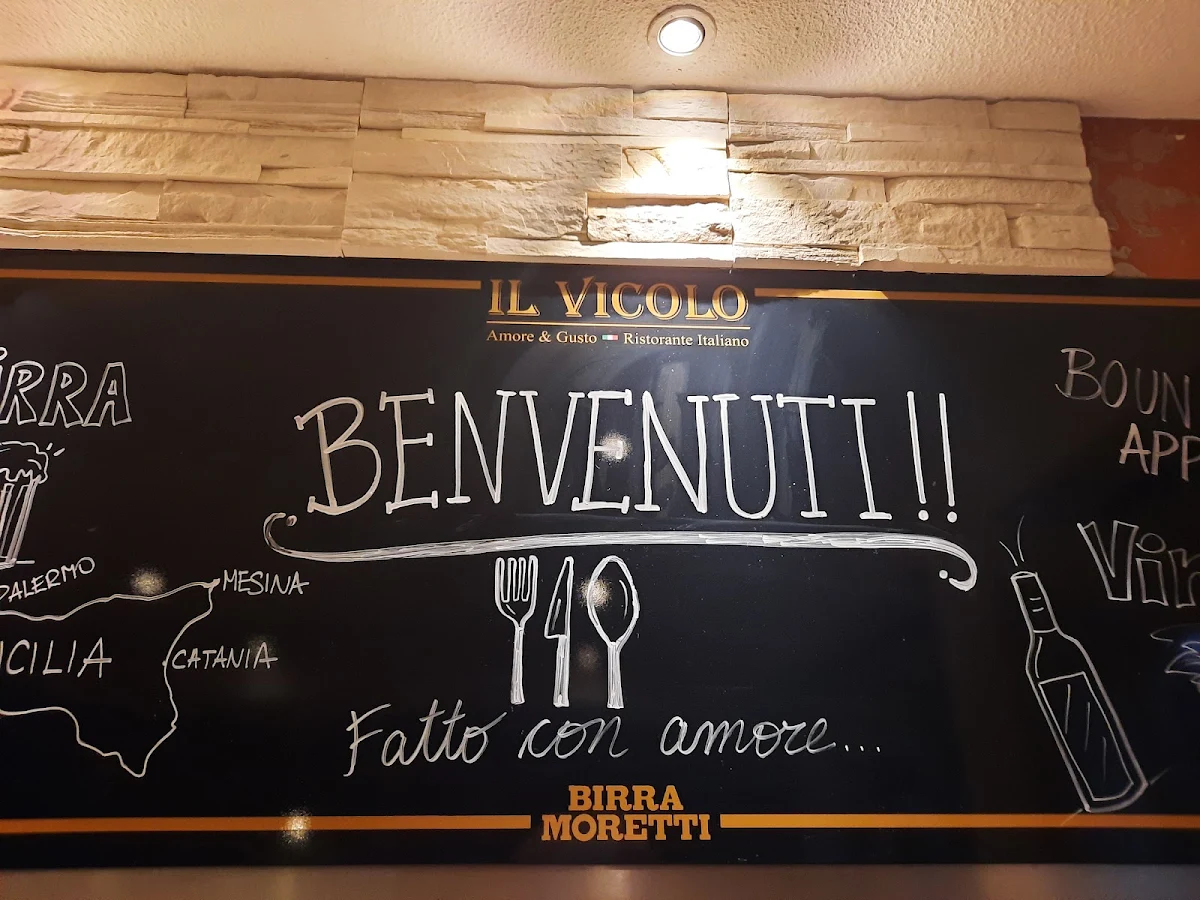 IL VICOLO
Amore & Gusto Ristorante Italiano
BENVENUTI!!
IRRA
PALERMO
MESINA
ICILIA
CATANIA
Fatto con amore...
BOUN
APP
Vin
BIRRA
MORETTI